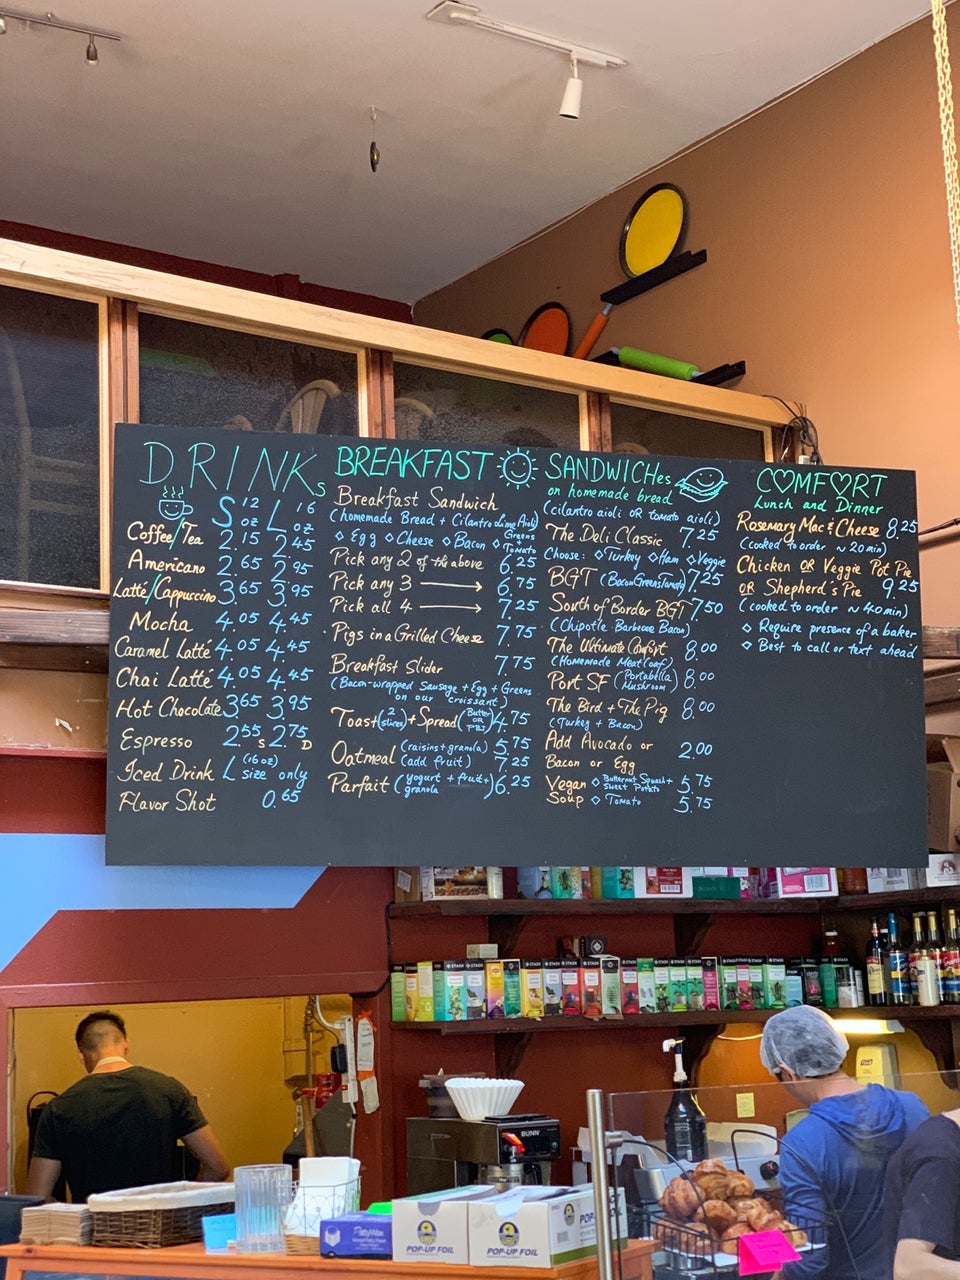 DRINKs
S 12 oz L 16 oz
Coffee/Tea 2.15 2.45
Americano 2.65 2.95
Latté/Cappuccino 3.65 3.95
Mocha 4.05 4.45
Caramel Latté 4.05 4.45
Chai Latté 4.05 4.45
Hot Chocolate 3.65 3.95
Espresso 2.55 S 2.75 D
Iced Drink L (16 oz) size only
Flavor Shot 0.65
BREAKFAST
Breakfast Sandwich
(homemade Bread + Cilantro Lime Aioli)
◇ Egg ◇ Cheese ◇ Bacon ◇ Greens Tomato
Pick any 2 of the above 6.25
Pick any 3 → 6.75
Pick all 4 → 7.25
Pigs in a Grilled Cheese 7.75
Breakfast Slider 7.75
(Bacon-wrapped Sausage + Egg + Greens
on our croissant)
Toast (2 slices) + Spread (Butter OR PBJ) 4.75
Oatmeal (raisins + granola) 5.75
(add fruit) 7.25
Parfait (yogurt + fruit + granola) 6.25
SANDWICHes
on homemade bread
(cilantro aioli OR tomato aioli)
The Deli Classic 7.25
Choose: ◇ Turkey ◇ Ham ◇ Veggie
BGT (Bacon Greens Tomato) 7.25
South of Border BGT 7.50
(Chipotle Barbecue Bacon)
The Ultimate Comfort 8.00
(Homemade Meatloaf)
Port SF (Portabella Mushroom) 8.00
The Bird + The Pig 8.00
(Turkey + Bacon)
Add Avocado or 2.00
Bacon or Egg
Vegan ◇ Butternut Squash + Sweet Potato 5.75
Soup ◇ Tomato 5.75
COMFORT
Lunch and Dinner
Rosemary Mac & Cheese 8.25
(cooked to order ~ 20 min)
Chicken OR Veggie Pot Pie
OR Shepherd's Pie 9.25
(cooked to order ~ 40 min)
◇ Require presence of a baker
◇ Best to call or text ahead
BUNN
PattyWax
POP-UP FOIL
POP-UP FOIL
POP-